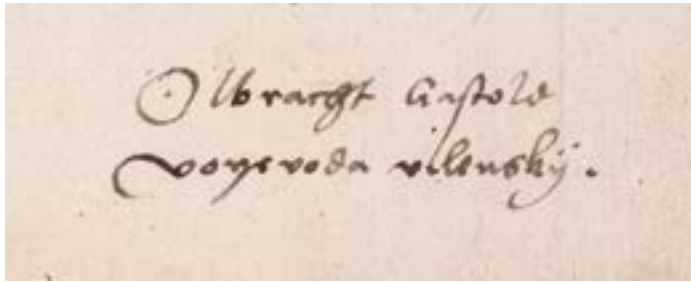 Olbracht Gastold
voyevoda vilenskij.